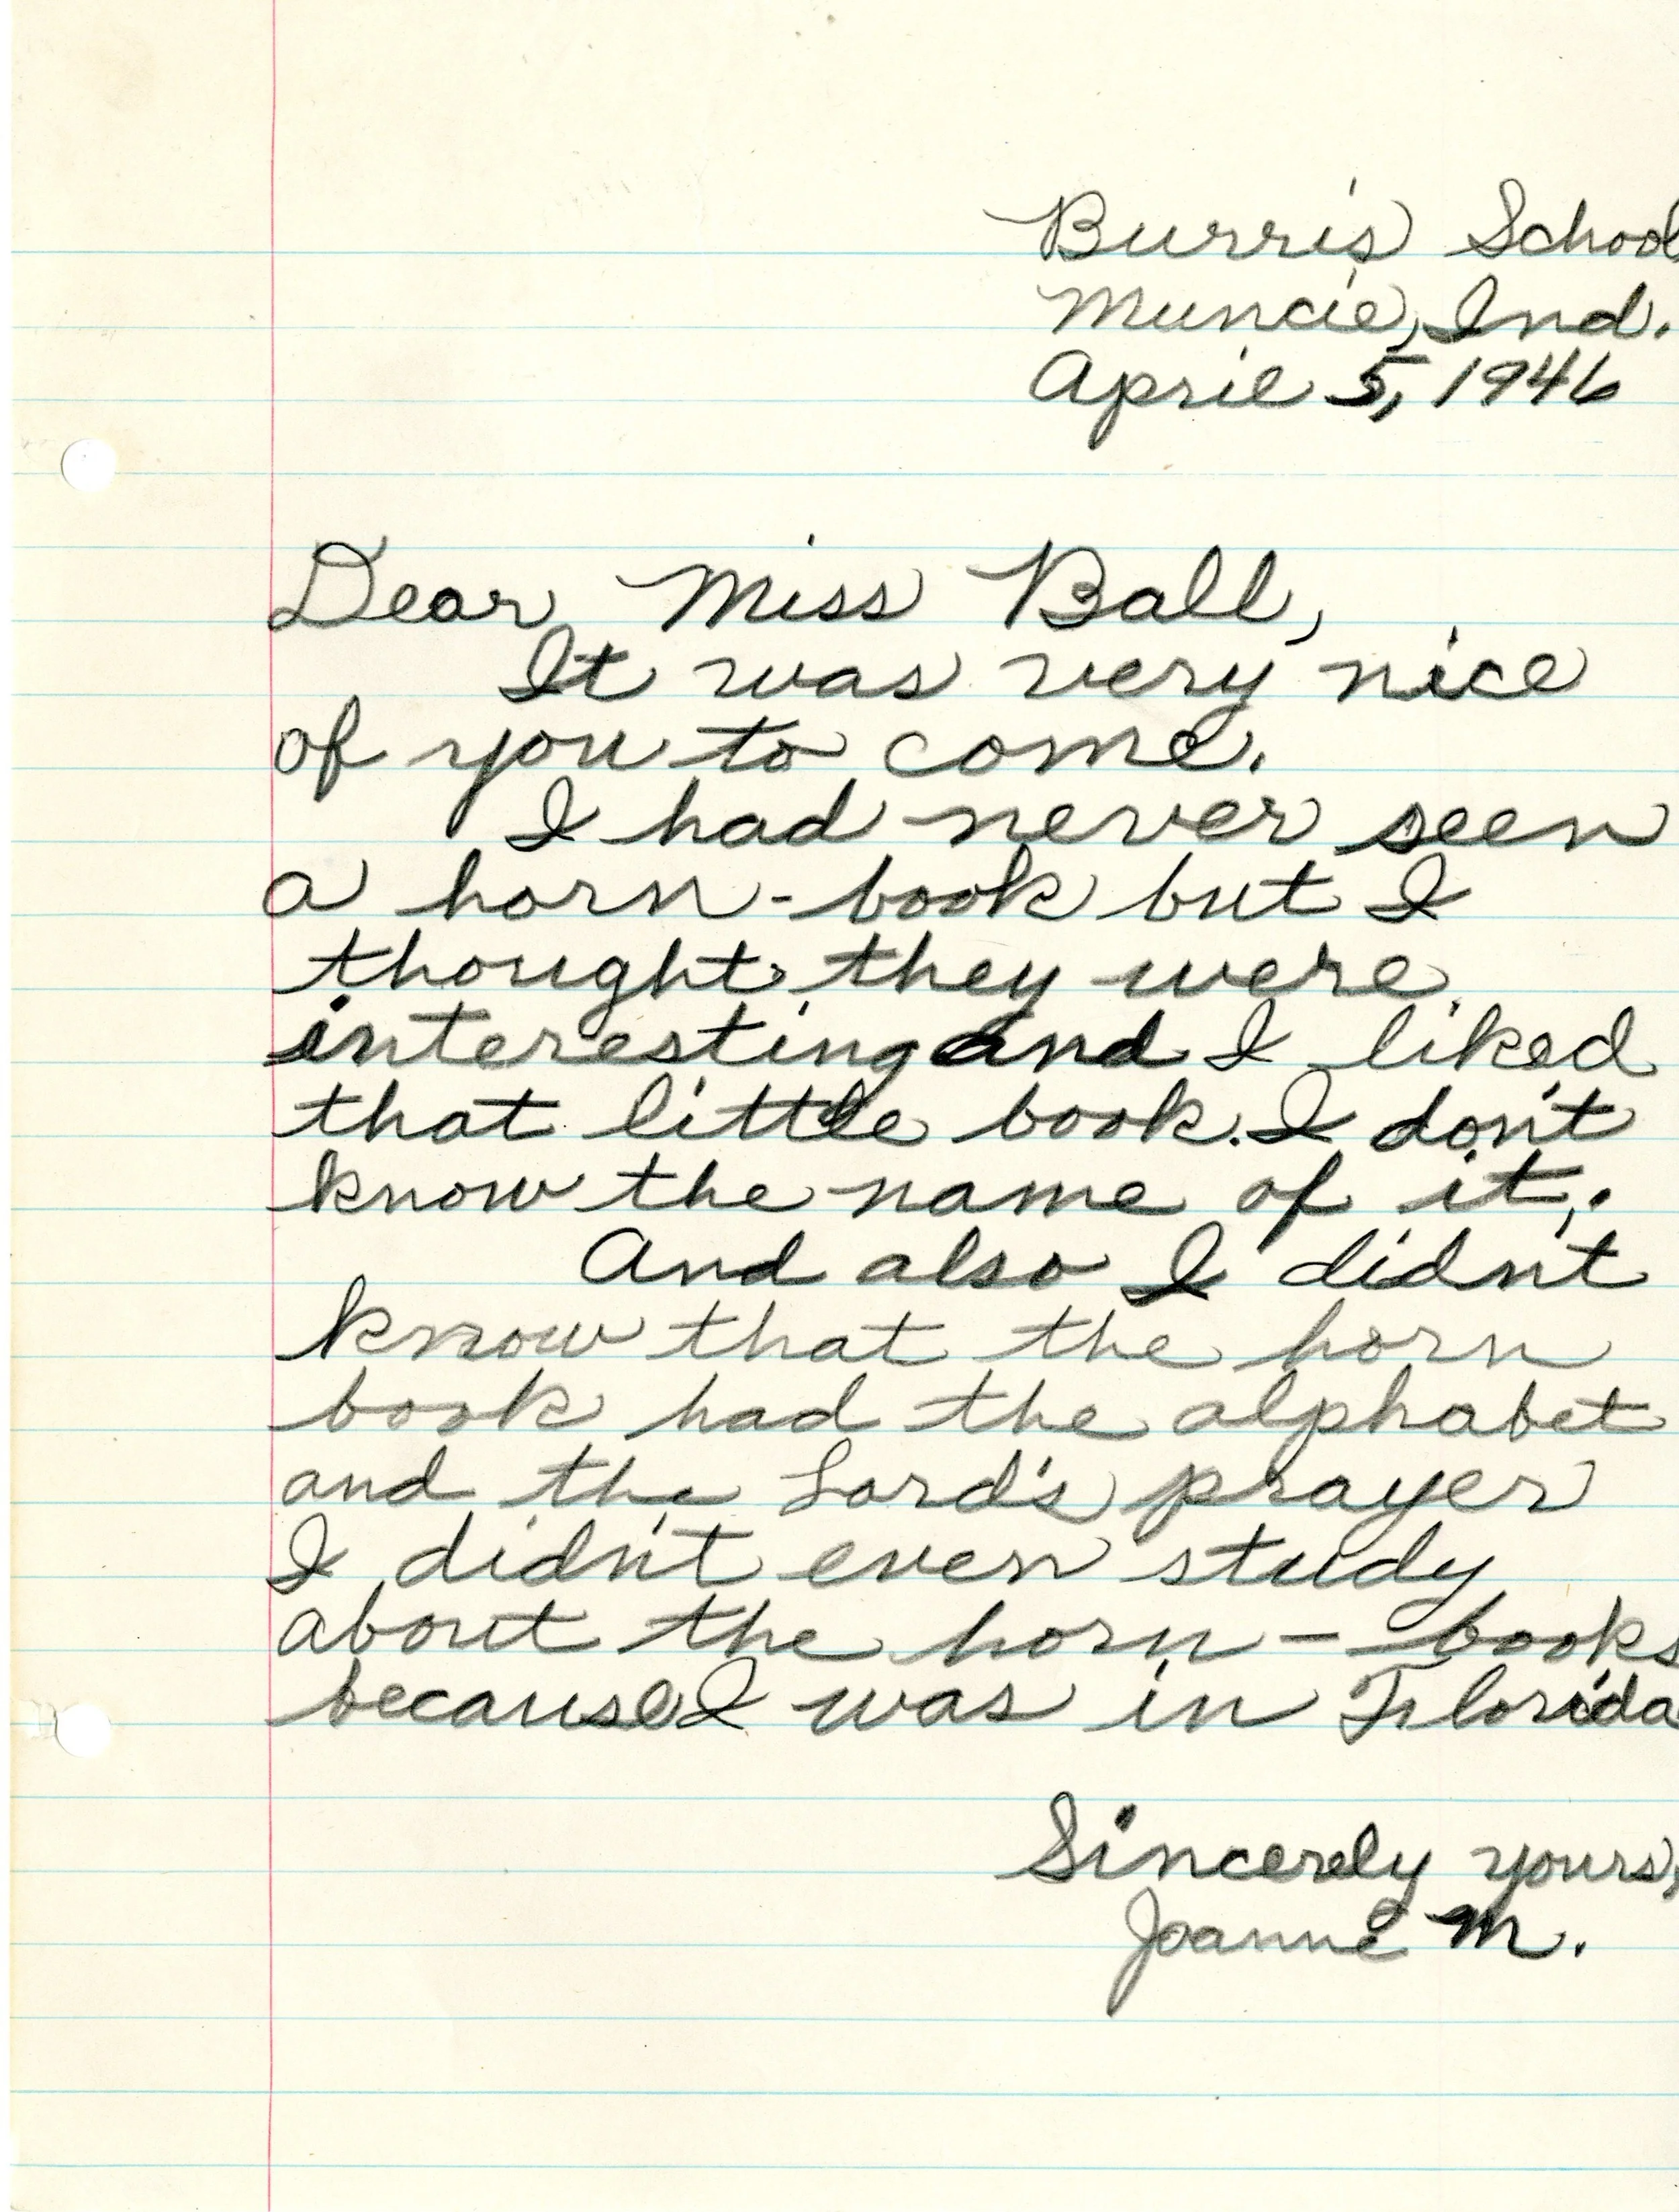 Burris School
Muncie, Ind.
April 5, 1946
Dear Miss Ball,
It was very nice
of you to come.
I had never seen
a horn-book but I
thought they were
interesting and I liked
that little book. I don't
know the name of it,.
And also I didn't
know that the horn
book had the alphabet
and the Lord's prayer
I didn't even study
about the horn-books
because I was in Florida
Sincerely yours,
Joanne M.